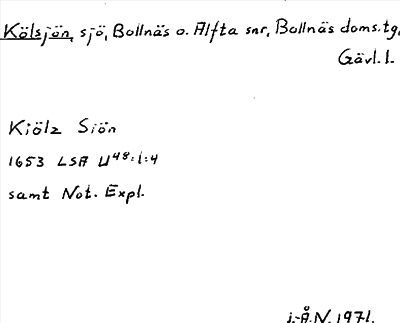 Kölsjön, sjö, Bollnäs o. Alfta snr, Bollnäs doms.tg,
Gävl.l.
Kiölz Siön
1653 LSA U48:1:4
samt Not. Expl.
J.-Å.N. 1971.